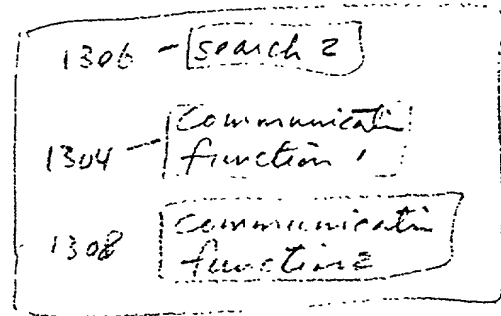 1306 - search 2
1304 - Communicatin
function 1
1308 communicatin
function 2